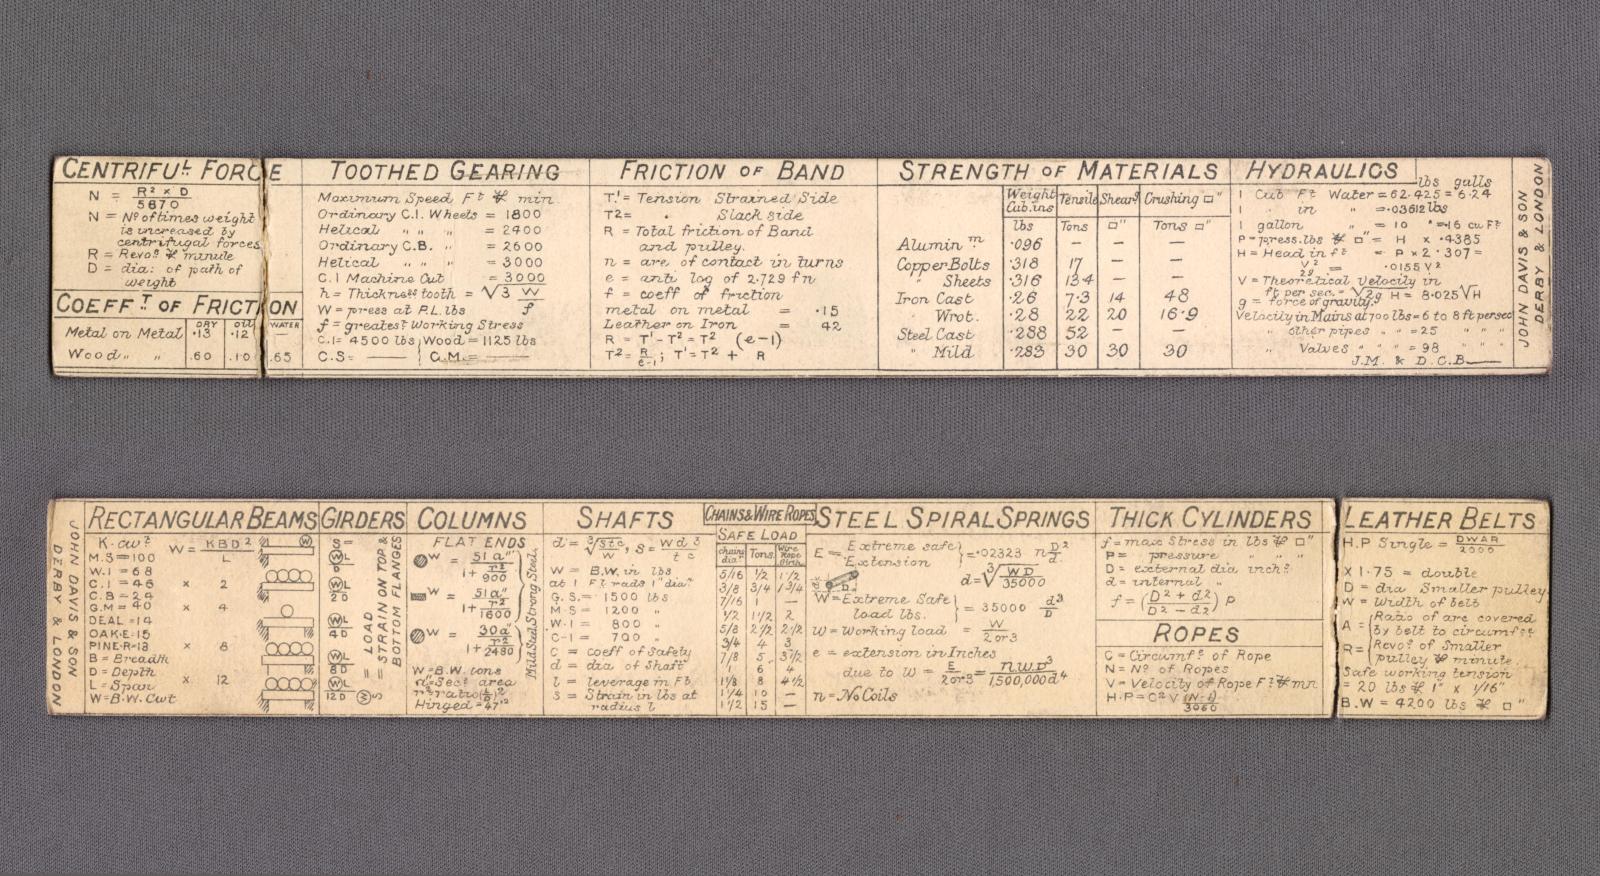 CENTRIFUL FORCE
N = R² x D / 5870
N = No of times weight
is increased by
centrifugal forces
R = Revos ₶ minute
D = dia: of path of
weight
COEFFT OF FRICTION
DRY OIL WATER
Metal on Metal ·13 ·12 —
Wood " " .60 .10 .65
TOOTHED GEARING
Maximum Speed Ft ₶ min.
Ordinary C.I. Wheels = 1800
Helical " " " = 2400
Ordinary C.B. " = 2600
Helical " " = 3000
C.I Machine Cut = 3000
h = Thickness tooth = √3 W / f
W = press at P.L. lbs
f = greatest Working Stress
C.I= 4500 lbs Wood = 1125 lbs
C.S= —— C.M.= ——
FRICTION OF BAND
T' = Tension Strained Side
T2 = . Slack side
R = Total friction of Band
and pulley.
n = are of contact in turns
e = anti log of 2.729 fn
f = coeff of friction
metal on metal = ·15
Leather on Iron = 42
R = T' - T² = T² (e-1)
T² = R / e-1; T' = T² + R
STRENGTH OF MATERIALS
Weight Cub.ins Tensile Shears Crushing □"
lbs Tons □" Tons □"
Alumin m ·096 — — —
Copper Bolts ·318 17 — —
" Sheets ·316 13·4 — —
Iron Cast ·26 7·3 14 48
" Wrot. ·28 22 20 16·9
Steel Cast ·288 52 — —
" Mild ·283 30 30 30
HYDRAULICS
lbs galls
1 Cub Ft Water = 62·425 = 6·24
1 " in " = ·03612 lbs
1 gallon " = 10 " = ·16 cu Ft
P = press. lbs ₶ □" = H x ·4385
H = Head in ft = P x 2·307 =
V² / 2g = ·0155 V²
V = Theoretical Velocity in
ft per sec. = √2g H = 8·025 √H
g = force of gravity.
Velocity in Mains at 700 lbs = 6 to 8 ft per sec
" other pipes " = 25 " " "
" Valves " " " = 98 " " "
J.M. & D.C.B——
JOHN DAVIS & SON
DERBY & LONDON
JOHN DAVIS & SON
DERBY & LONDON
RECTANGULAR BEAMS
K. cwt W = KBD² / L
M.S = 100
W.I = 68
C.I = 46 x 2
C.B = 24
G.M = 40 x 4
DEAL = 14
OAK·E·15
PINE·R·13 x 8
B = Breadth
D = Depth
L = Span x 12
W = B.W. Cwt
W
GIRDERS
S =
WL / D
WL / 2D
WL / 4D
WL / 8D
WL / 12D
= LOAD
S = STRAIN ON TOP &
BOTTOM FLANGES
COLUMNS
FLAT ENDS
W = 51a" / 1 + r² / 900
W = 51a" / 1 + r² / 1600
W = 30a" / 1 + r² / 2480
Mild Steel, Strong Steel.
W = B.W. tons
a" = Secl area
Hinged =
SHAFTS
d = ³√stc / W, S = Wd³ / tc
W = B.W. in lbs
at 1 Ft rads 1" dia:
G.S. = 1500 lbs
M·S = 1200 "
W·I = 800 "
C·I = 700 "
C = coeff of Safety
d = dia of Shaft
l = leverage in Ft.
s = Strain in lbs at
radius l
CHAINS & WIRE ROPES
SAFE LOAD
chains dia: Tons. Wire Rope Girth
5/16 1/2 1 1/2
3/8 3/4 1 3/4
7/16 1 —
1/2 1 1/2 2
5/8 2 1/2 2 1/2
3/4 4 3
7/8 5 3 1/2
1 6 4
1 1/8 8 4 1/2
1 1/4 10 —
1 1/2 15 —
STEEL SPIRAL SPRINGS
E = Extreme safe Extension = ·02323 n D² / d.
d = ³√WD / 35000
W = Extreme Safe load lbs. = 35000 d³ / D
w = Working load = W / 2 or 3
e = extension in Inches
due to W = E / 2 or 3 = n.w.D³ / 1500,000 d⁴
n = No Coils
THICK CYLINDERS
f = max Stress in lbs ₶ □"
P = pressure " " "
D = external dia inchs
d = internal "
f = (D² + d² / D² - d²) P
ROPES
C = Circumfs of Rope
N = No of Ropes
V = Velocity of Rope Ft ₶ mn
H.P = C² V (N-1) / 3060
LEATHER BELTS
H.P Single = DWAR / 2000
X 1·75 = double
D = dia Smaller pulley
W = Width of belt
A = Ratio of are covered
by belt to circumfce
R = Revos of Smaller
pulley ₶ minute.
Safe working tension
= 20 lbs ₶ 1" x 1/16"
B.W = 4200 lbs ₶ □"